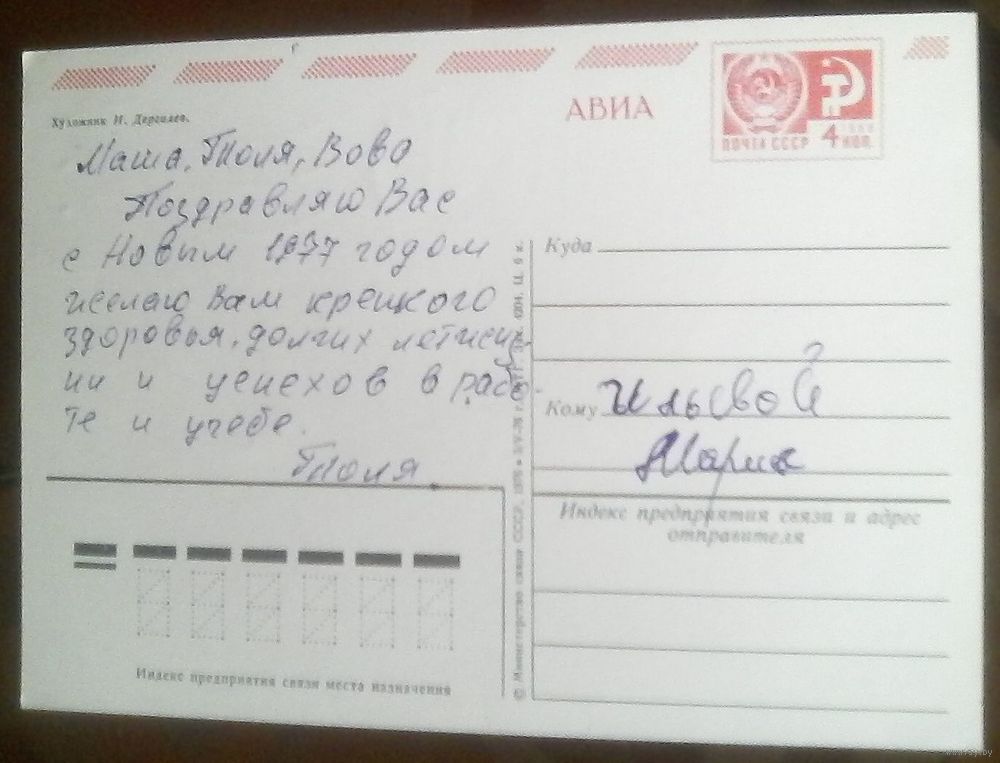 АВИА
ПОЧТА СССР 4 КОП.
Художник И. Дергилев.
Маша, Толя, Вова
Поздравляю Вас
с Новым 1977 годом
желаю Вам крепкого
здоровья, долгих лет жиз
ни и успехов в рабо-
те и учебе.
Толя.
Куда
Кому Ильевой
Марии
Индекс предприятия связи и адрес
отправителя
Индекс предприятия связи места назначения
© Министерство связи СССР, 1976